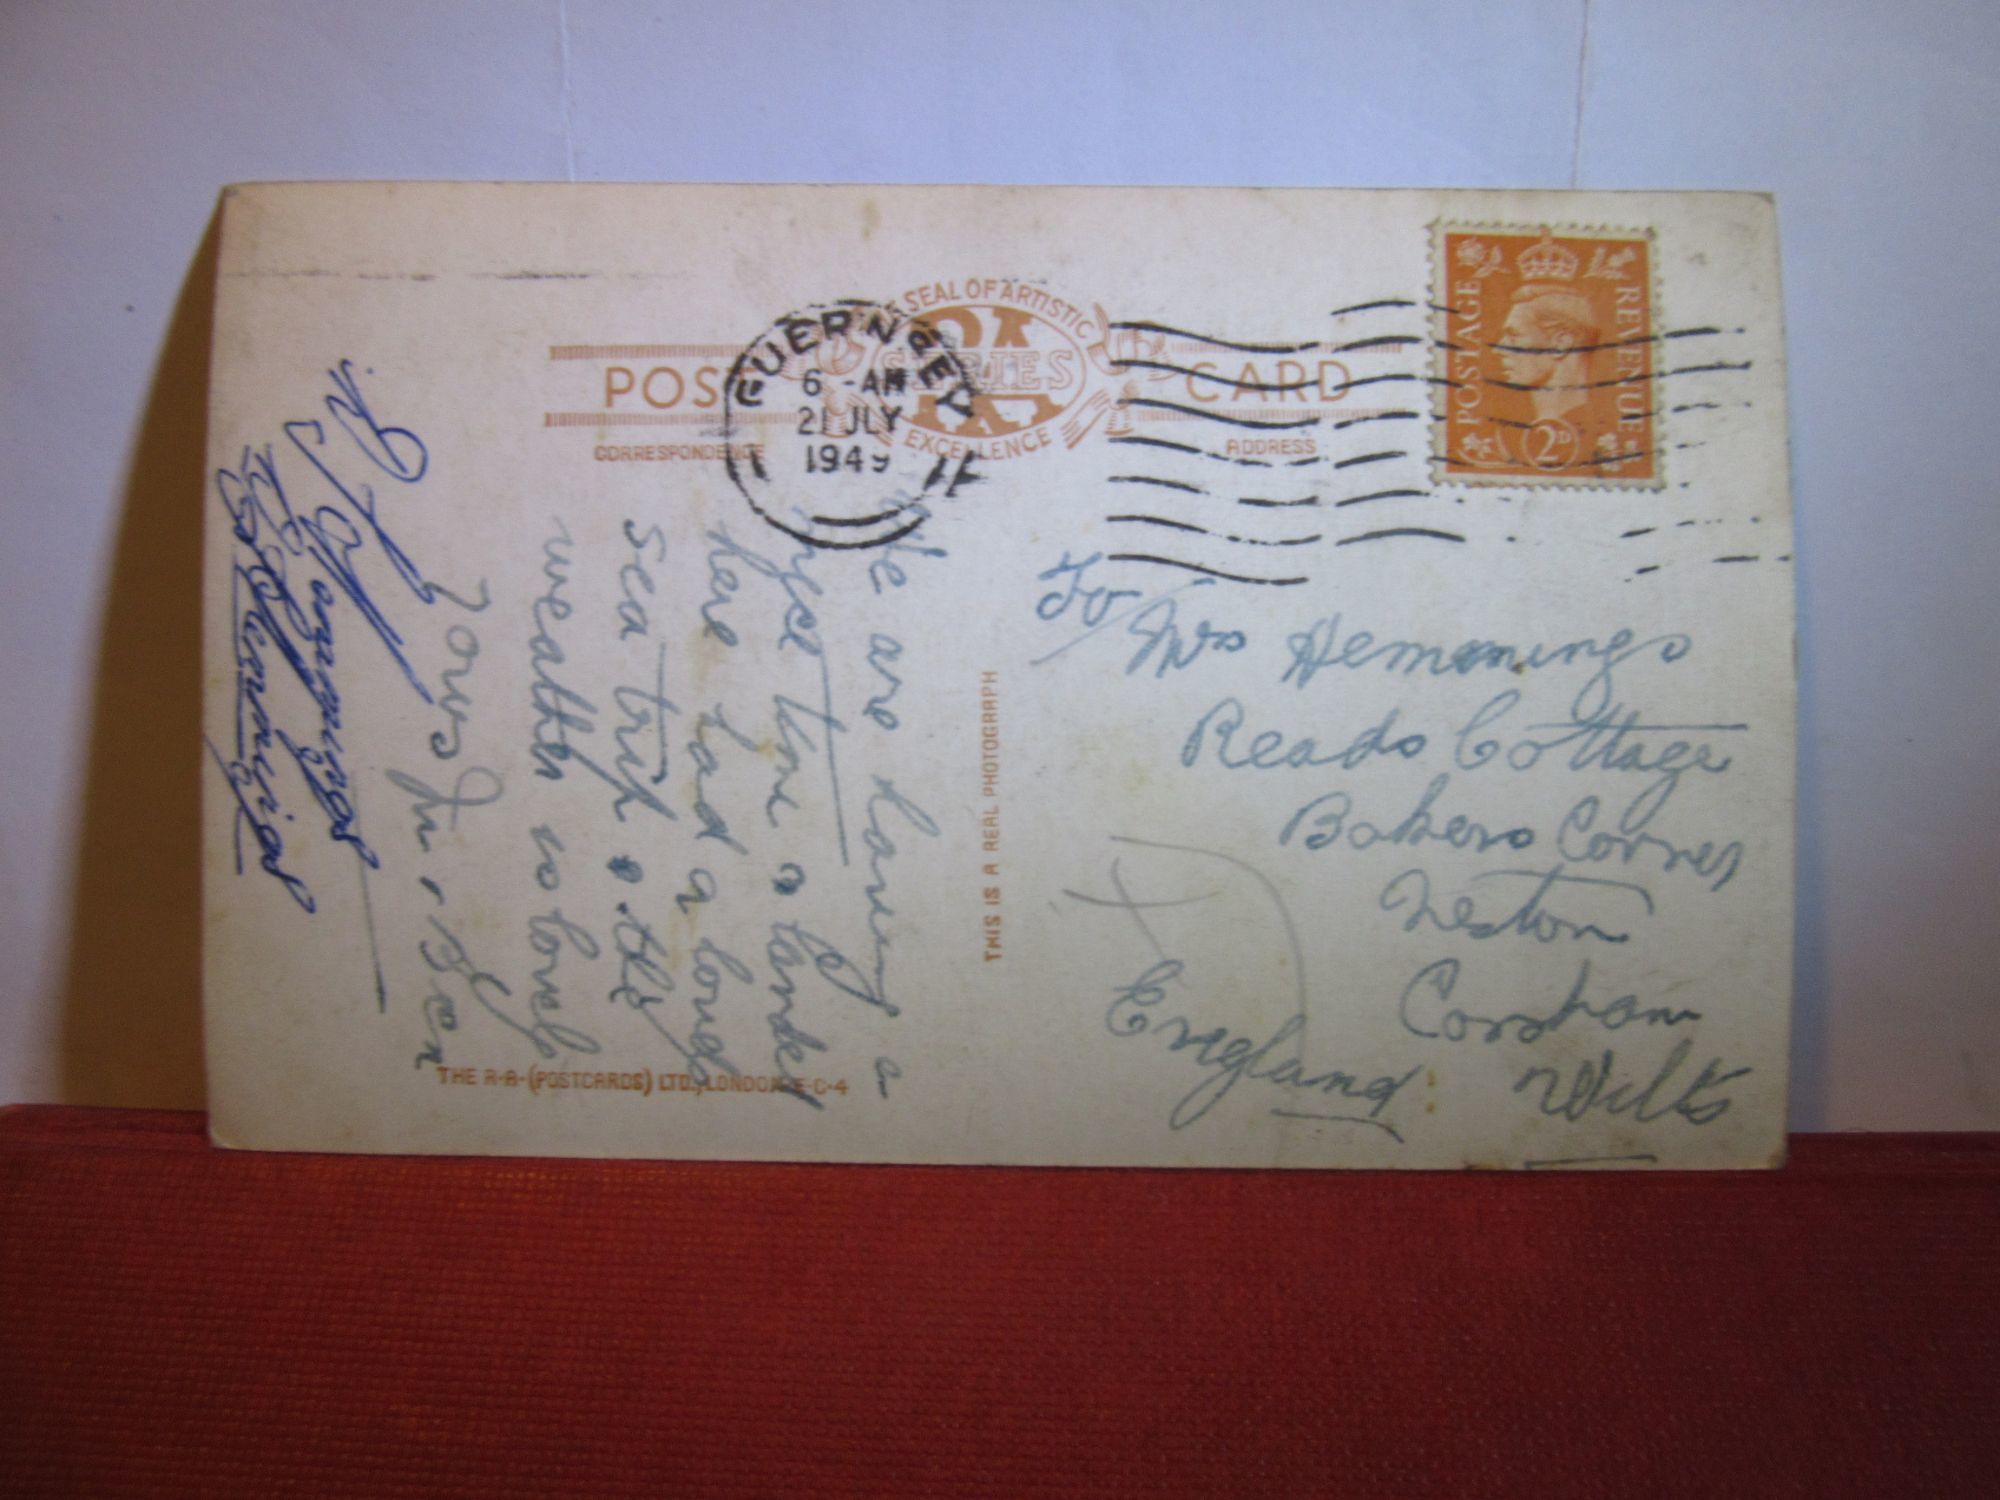 POST CARD
CORRESPONDENCE
ADDRESS
SEAL OF ARTISTIC
RA
SERIES
EXCELLENCE
GUERNSEY
6 - AM
21 JLY
1949
POSTAGE
REVENUE
2D
THIS IS A REAL PHOTOGRAPH
THE R.A. (POSTCARDS) LTD., LONDON E.C.4
We are having a
nyce time & landed
here had a lovely
sea trip the
weather is lovely
Yours
To
Mrs Hemmings
Reads Cottage
Bakers Corner
Neston
Corsham
Wilts
England